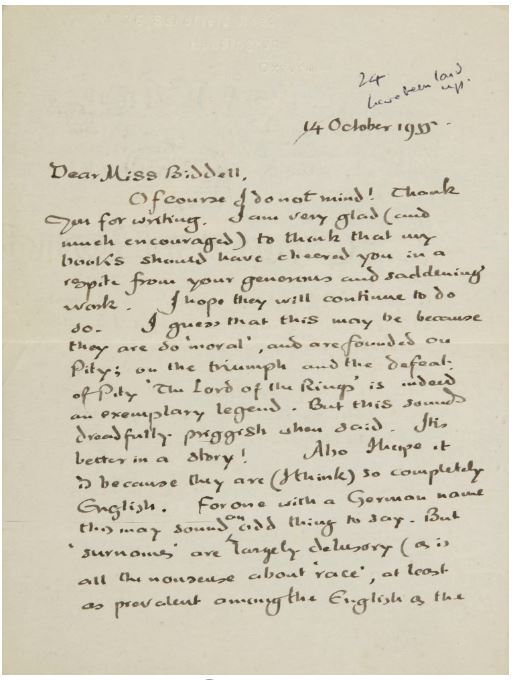 24
have been laid
up.
14 October 1955.
Dear Miss Biddell,
Of course I do not mind! Thank
you for writing. I am very glad (and
much encouraged) to think that my
books should have cheered you in a
respite from your generous and saddening
work. I hope they will continue to do
so. I guess that this may be because
they are so 'moral', and are founded on
Pity; on the triumph and the defeat
of Pity 'The Lord of the Rings' is indeed
an exemplary legend. But this sounds
dreadfully priggish when said. It is
better in a story! Also I hope it
is because they are (I think) so completely
English. For one with a German name
this may sound an odd thing to say. But
'surnames' are largely delusory (as is
all the nonsense about 'race', at least
as prevalent among the English as the